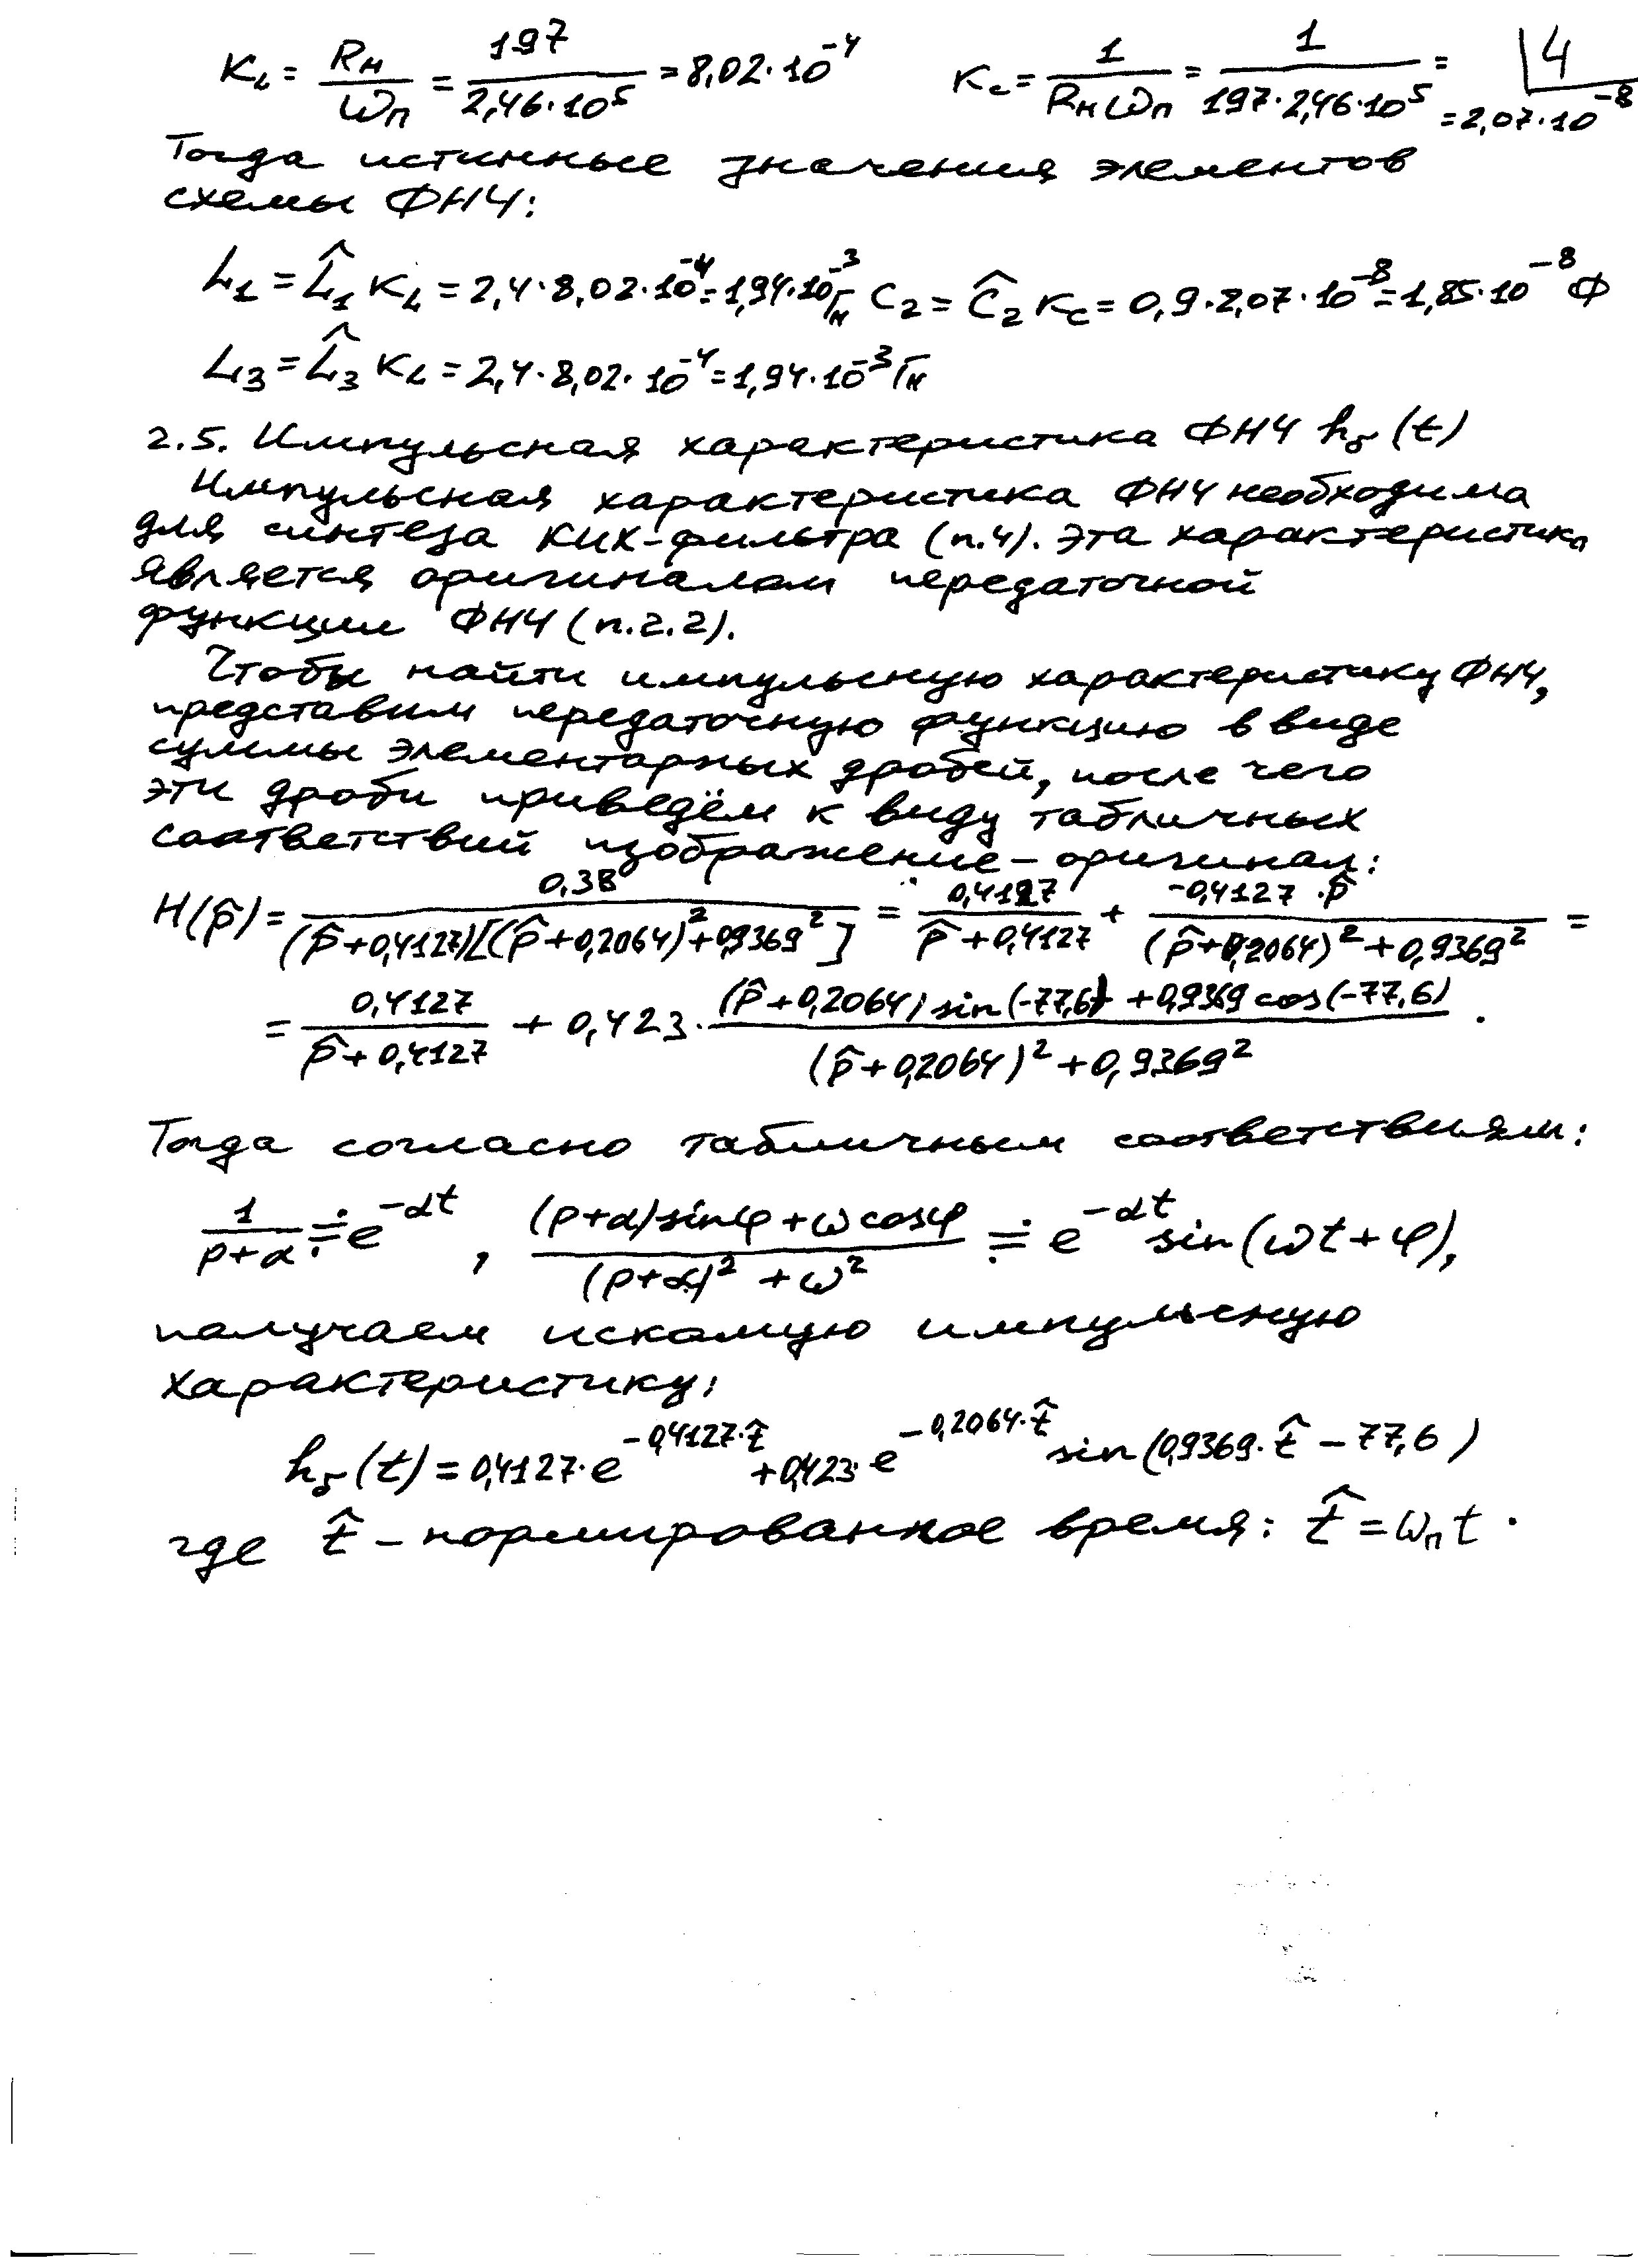 4
K_L = R_н/ω_п = 197/(2,46·10^5) = 8,02·10^-4   K_c = 1/(R_н ω_п) = 1/(197·2,46·10^5) = = 2,07·10^-8
Тогда истинные значения элементов
схемы ФНЧ:
L_1 = L̂_1 K_L = 2,4·8,02·10^-4 = 1,94·10^-3 Гн   C_2 = Ĉ_2 K_c = 0,9·2,07·10^-8 = 1,85·10^-8 Ф
L_3 = L̂_3 K_L = 2,4·8,02·10^-4 = 1,94·10^-3 Гн
2.5. Импульсная характеристика ФНЧ h_δ(t)
Импульсная характеристика ФНЧ необходима
для синтеза КИХ-фильтра (п.4). Эта характеристика
является оригиналом передаточной
функции ФНЧ (п.2.2).
Чтобы найти импульсную характеристику ФНЧ,
представим передаточную функцию в виде
суммы элементарных дробей, после чего
эти дроби приведём к виду табличных
соответствий изображение – оригинал:
H(p̂) = 0,38/((p̂+0,4127)[(p̂+0,2064)^2+0,9369^2]) = 0,4127/(p̂+0,4127) + (-0,4127·p̂)/((p̂+0,2064)^2+0,9369^2) =
= 0,4127/(p̂+0,4127) + 0,423·((p̂+0,2064) sin(-77,6) + 0,9369 cos(-77,6))/((p̂+0,2064)^2+0,9369^2).
Тогда согласно табличным соответствиям:
1/(p+α) ≓ e^(-αt), ((p+α)sinφ + ω cosφ)/((p+α)^2 + ω^2) ≓ e^(-αt) sin(ωt+φ),
получаем искомую импульсную
характеристику:
h_δ(t) = 0,4127·e^(-0,4127·t̂) + 0,423·e^(-0,2064·t̂) sin(0,9369·t̂ – 77,6)
где t̂ – нормированное время: t̂ = ω_п t.